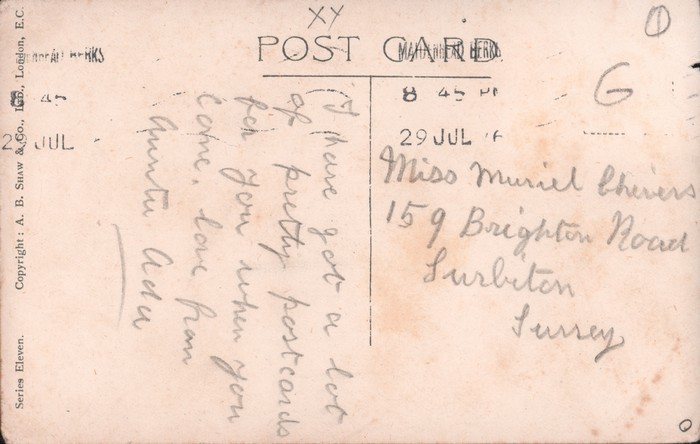 XY
1
POST CARD
MAIDENHEAD BERKS
8 45 PM
29 JUL
G
8 45
29 JUL
I have got a lot
of pretty postcards
for you when you
come, love from
Auntie Ada
Miss Muriel Chivers
159 Brighton Road
Surbiton
Surrey
Series Eleven. Copyright: A. B. SHAW & Co., LTD., London, E.C.